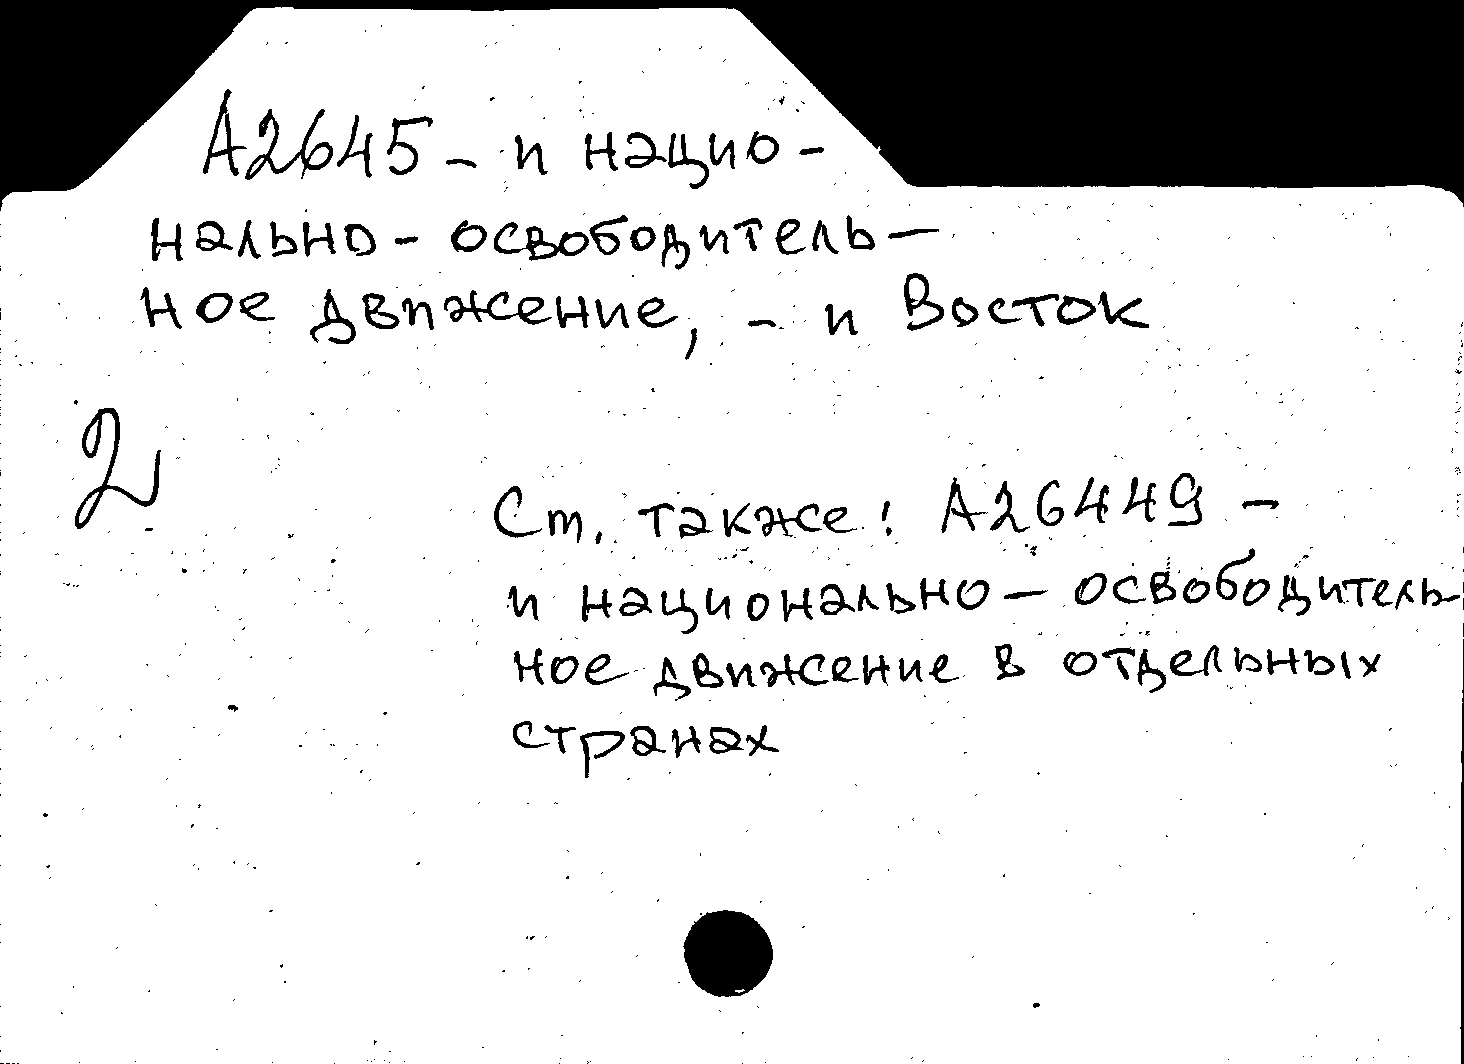 А2645 - и нацио-
нально-освободитель-
ное движение, - и Восток
2
См. также: А26449 -
и национально-освободитель-
ное движение в отдельных
странах